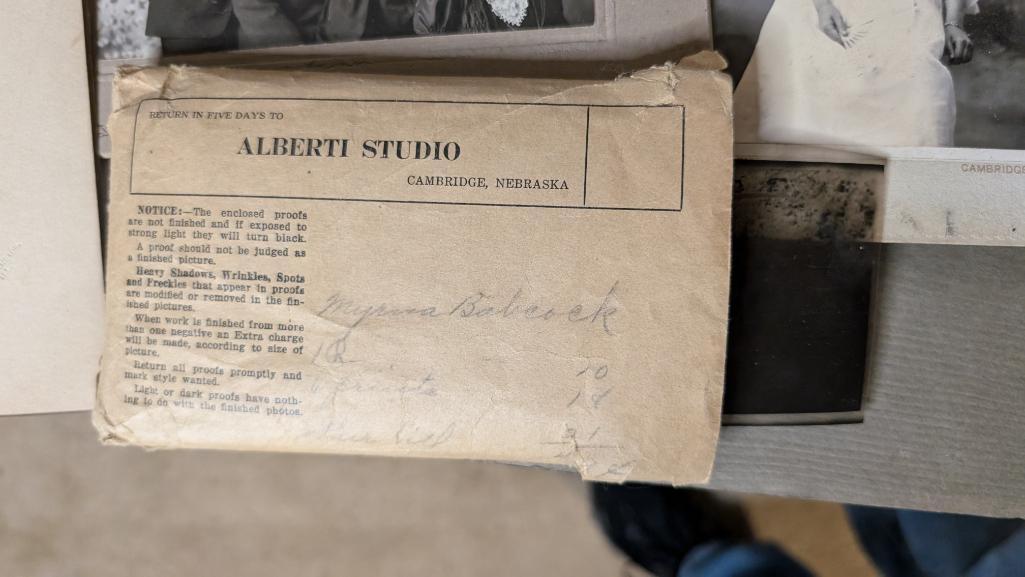 RETURN IN FIVE DAYS TO
ALBERTI STUDIO
CAMBRIDGE, NEBRASKA
NOTICE:—The enclosed proofs
are not finished and if exposed to
strong light they will turn black.
A proof should not be judged as
a finished picture.
Heavy Shadows, Wrinkles, Spots
and Freckles that appear in proofs
are modified or removed in the fin-
ished pictures.
When work is finished from more
than one negative an Extra charge
will be made, according to size of
picture.
Return all proofs promptly and
mark style wanted.
Light or dark proofs have noth-
ing to do with the finished photos.
Myrna Babcock
10
18
CAMBRIDGE